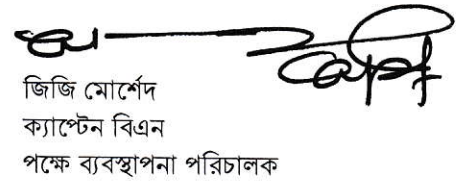 জিজি মোর্শেদ
ক্যাপ্টেন বিএন
পক্ষে ব্যবস্থাপনা পরিচালক